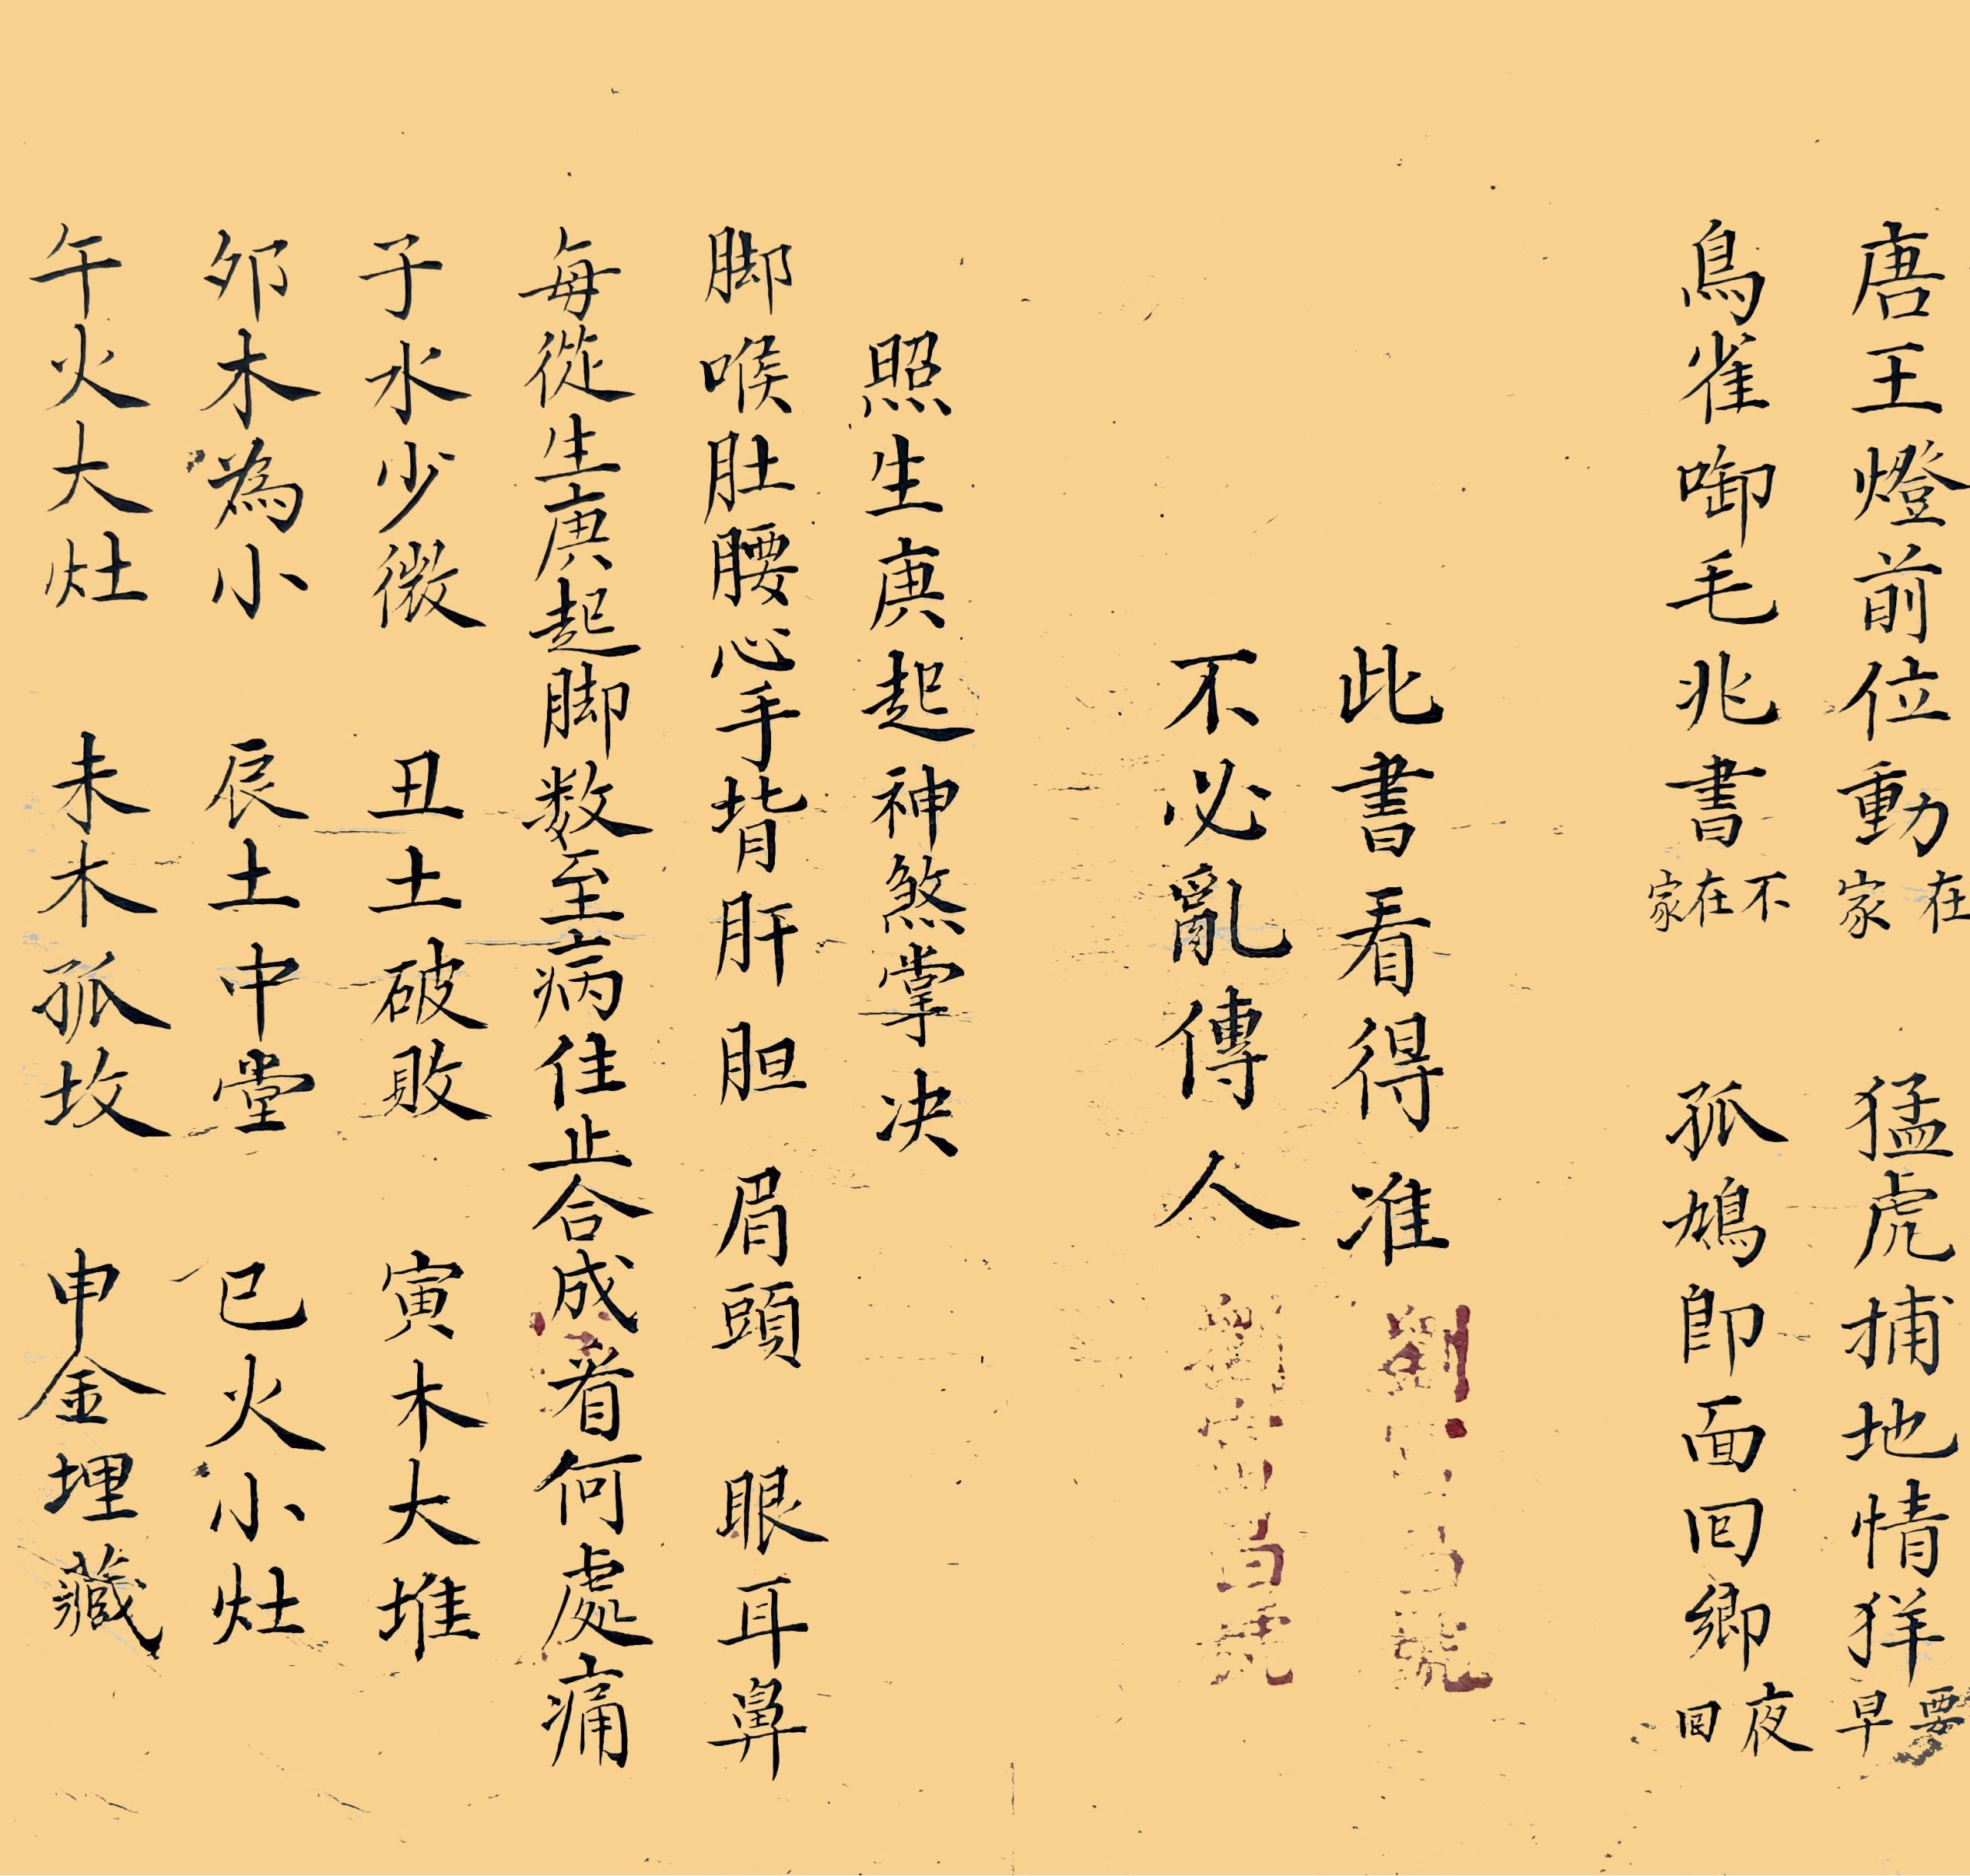 唐王燈前位動在家　猛虎捕地情猚要早
鳥雀啣毛兆書不在家　孤鴆即面囘鄉夜囘
此書看得准
不必亂傳人
照生庚起神煞掌决
脚喉肚腰心手背肝胆　眉頭　眼耳鼻
每從生庚起脚数至病住止合成看何處痛
子水少微　丑土破敗　寅木大堆
夘木為小　辰土中堂　巳火小灶
午火大灶　未木孤坟　申金埋藏